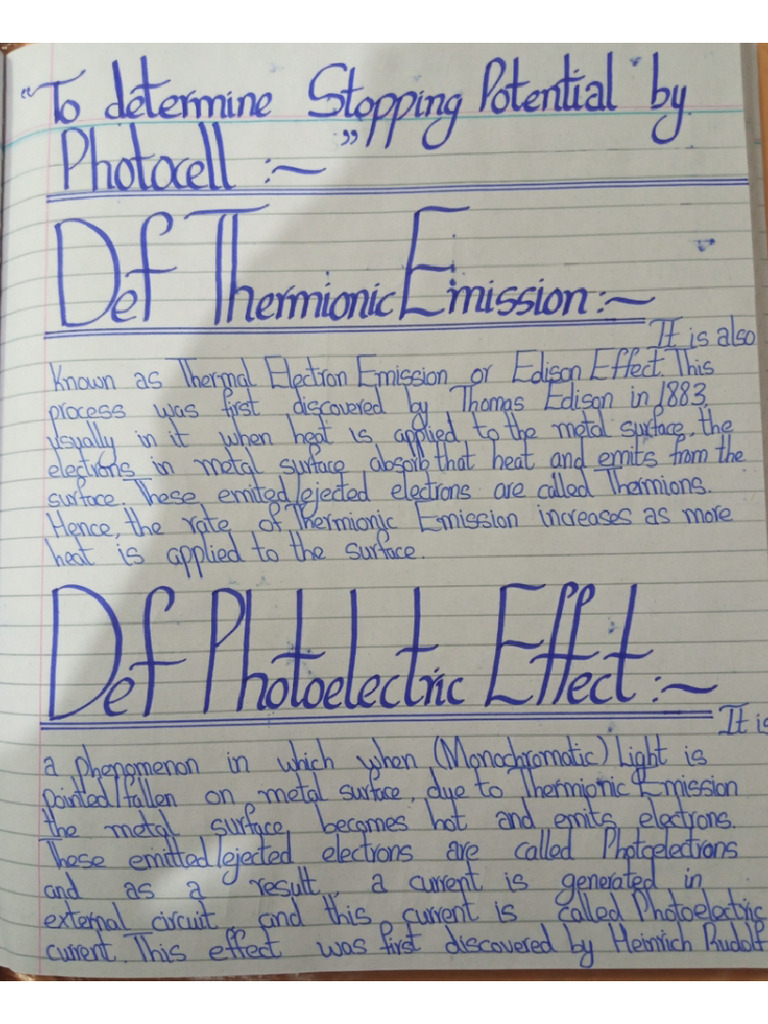 "To determine Stopping Potential by
Photocell :~ "
Def Thermionic Emission:~
It is also
Known as Thermal Electron Emission or Edison Effect. This
process was first discovered by Thomas Edison in 1883.
Usually in it when heat is applied to the metal surface, the
electrons in metal surface absorb that heat and emits from the
surface. These emited/ejected electrons are called Thermions.
Hence, the rate of Thermionic Emission increases as more
heat is applied to the surface.
Def Photoelectric Effect:~
It is
a phenomenon in which when (Monochromatic) Light is
pointed/fallen on metal surface, due to Thermionic Emission
the metal surface becomes hot and emits electrons.
These emitted/ejected electrons are called Photoelectrons
and as a result, a current is generated in
external circuit and this current is called Photoelectric
current. This effect was first discovered by Heinrich Rudolf